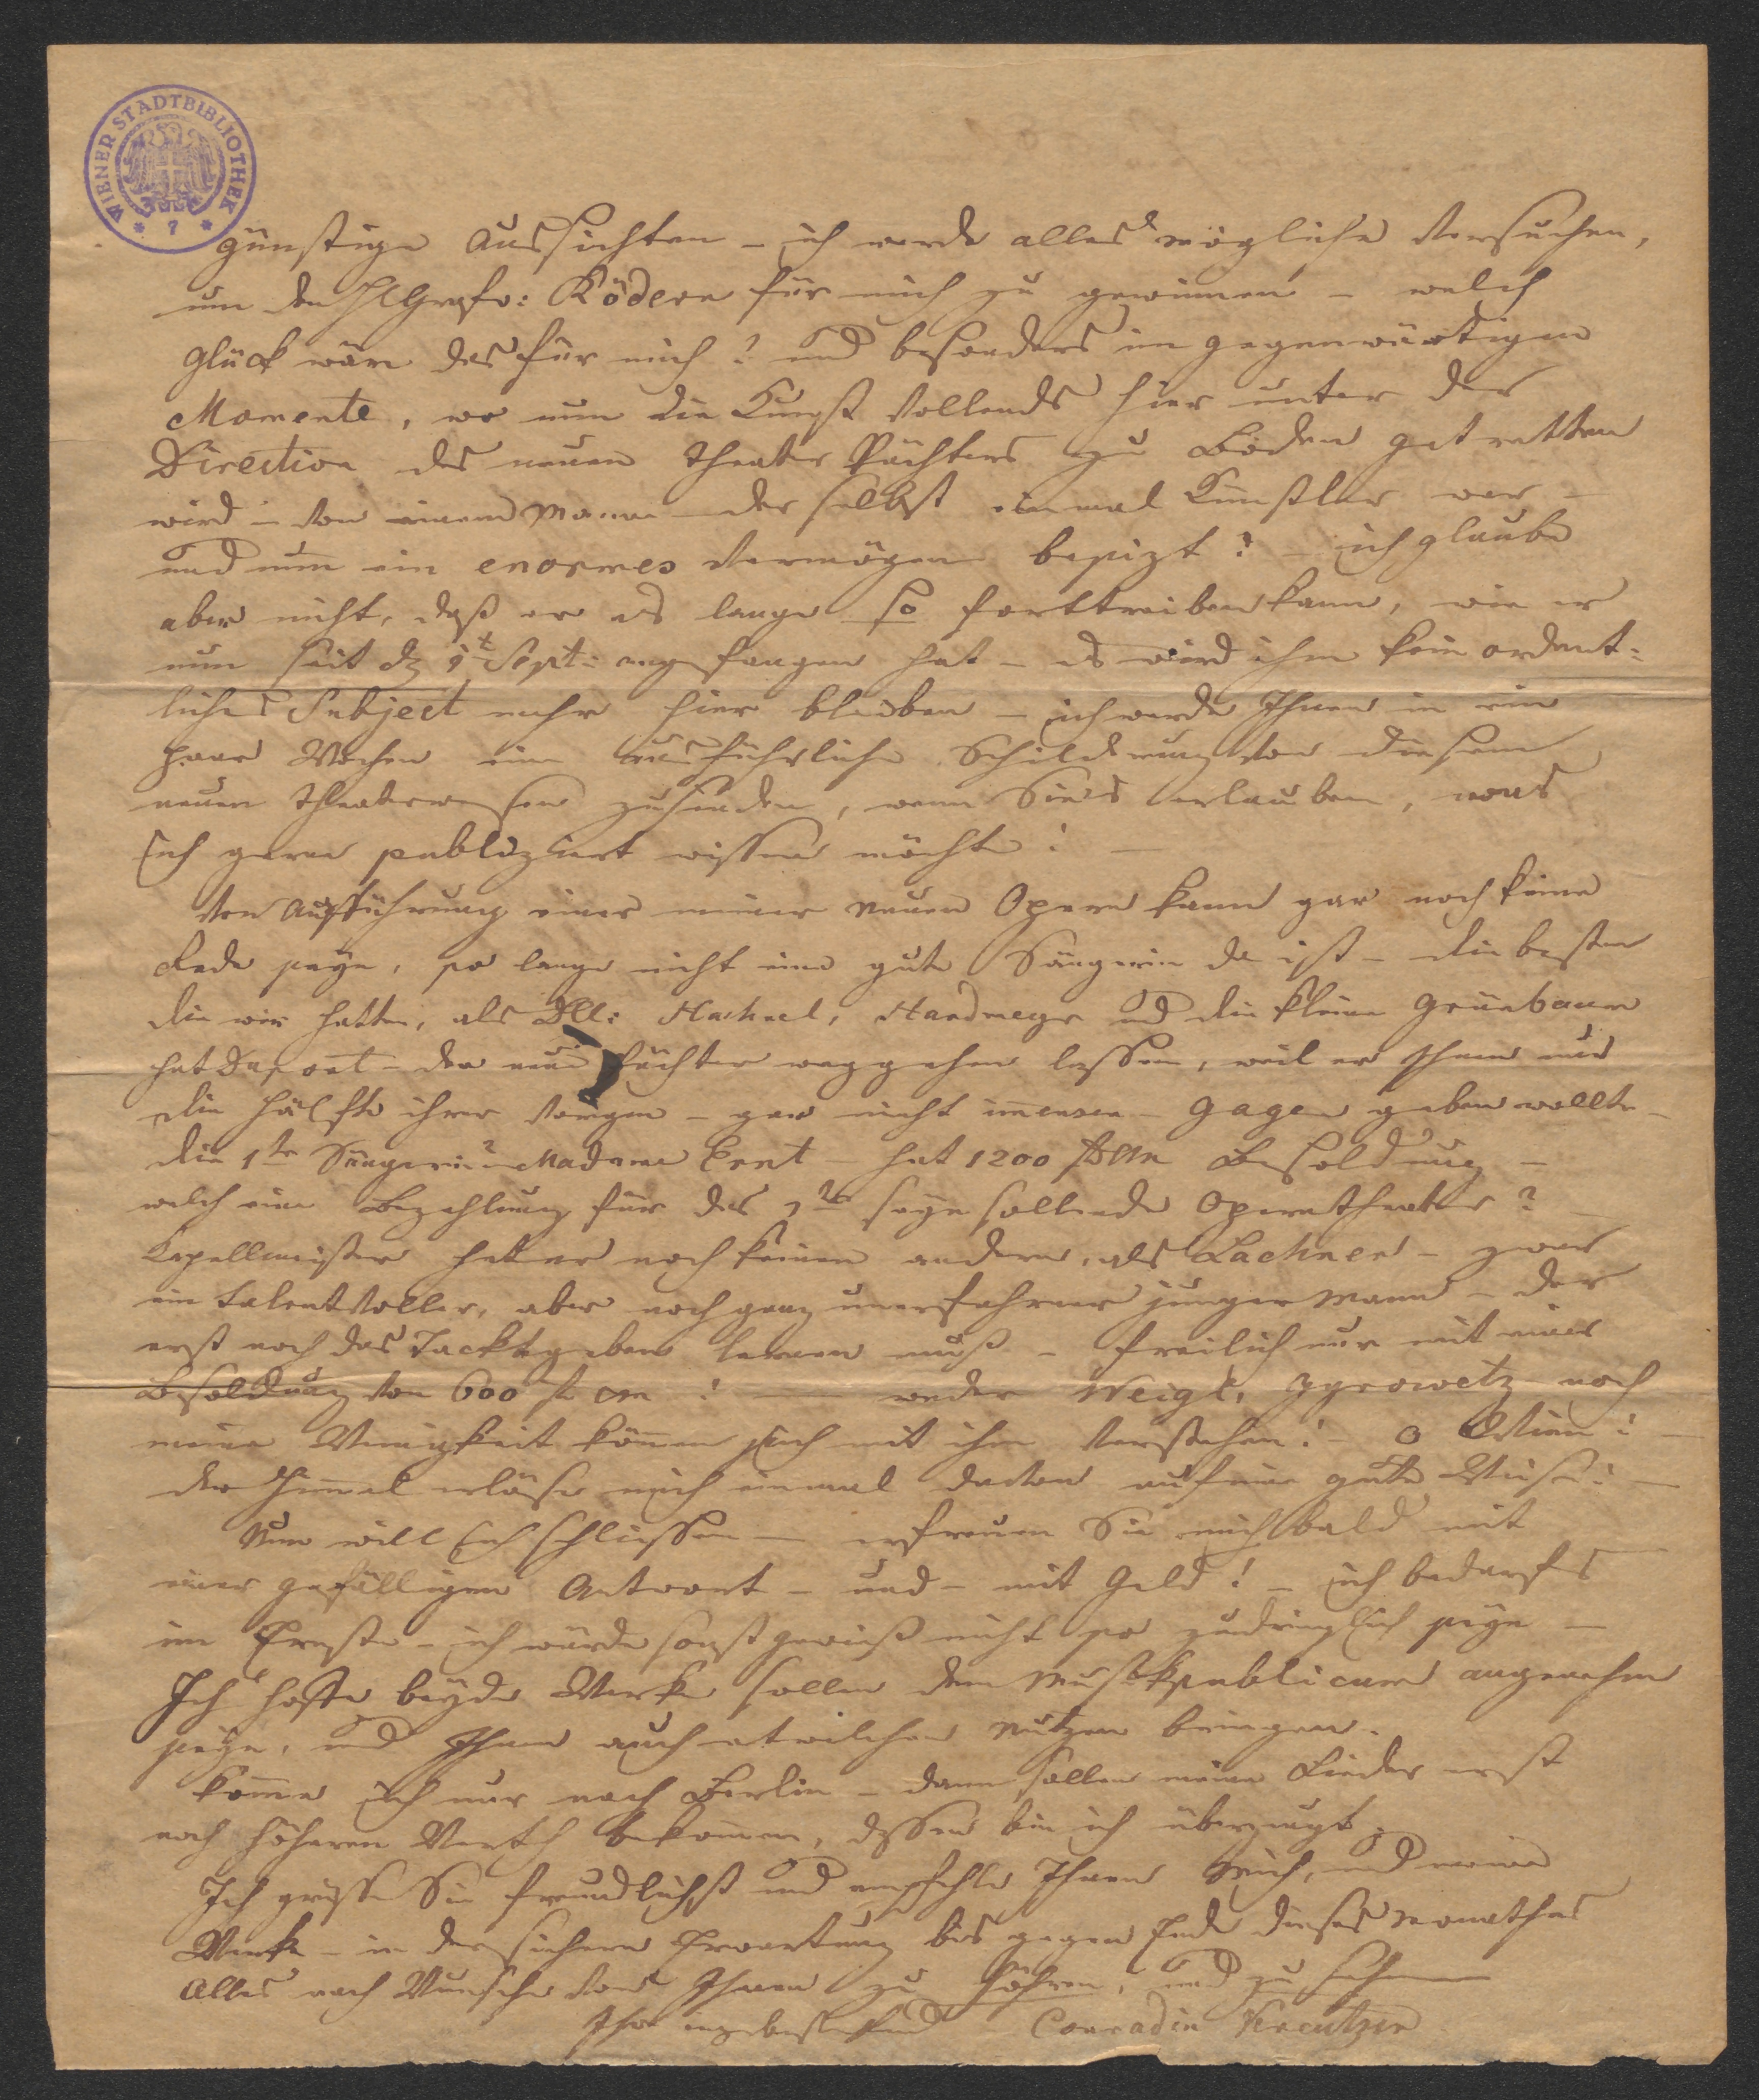 WIENER STADTBIBLIOTHEK
* 7 *
günstige Aussichten – ich werde alles mögliche versuchen,
um den H Grafen: Rödern für mich zu gewinnen – welch
Glück wäre das für mich? und besonders im gegenwärtigen
Momente, wo nun die Kunst vollends hier unter der
Direction des neuen Theater Pächters zu Boden getretten
wird – von einem Manne der selbst einmal Künstler war –
und nun ein enormes Vermögen besizt? – ich glaube
aber nicht, daß er es lange so forttreiben kann, wie er
nun seit dem 1t Sept: angefangen hat – es wird ihm kein ordent:
liches Subject mehr hier bleiben – ich werde Ihnen in ein
paar Wochen eine ausführliche Schilderung von diesem
neuen Theaterwesen zusenden, wenn Sie's erlauben, was
ich gerne publizirt wissen möchte! –
Von Aufführung einer meiner neuen Opern kann gar noch keine
Rede seyn, so lange nicht eine gute Sängerin da ist – die besten
die wir hatten, als Dlle: Hachnel, Hardmeyr und die kleine Grünbaum
hat Duport – der neue Pächter weggehen lassen, weil er Ihnen nur
die Hälfte ihrer vorigen – gar nicht im̄ensen – Gagen geben wollte –
die 1te Sängerin – Madame Ernt – hat 1200 f CM Besoldung –
welch eine Bezahlung für das 1te seyn sollende Operntheater? –
Kapellmeister hat er noch keinen andern, als Lachner – zwar
ein talentvoller, aber noch ganz unerfahrner junger Mann – der
erst noch das Tacktgeben lernen muß – freilich nur mit einer
Besoldung von 600 f CM! – weder Weigl, Gyrowetz noch
meine Wenigkeit kön̄en sich mit ihm verstehen! – O Wien! –
der Him̄el erlöse mich einmal davon auf eine gute Weise! –
Nun will ich schliessen – erfreuen Sie mich bald mit
einer gefälligen Antwort – und – mit Geld! – ich bedarfs
im Ernste – ich würde sonst gewiß nicht so zudringlich seyn –
Ich hoffe beyde Werke sollen dem Musikpublicum angenehm
seyn, und Ihnen auch etwelchen Nutzen bringen.
Kom̄e ich nur nach Berlin – dann sollen meine Lieder erst
noch höheren Werth bekom̄en, dessen bin ich überzeugt.
Ich grüsse Sie freundlichst und empfehle Ihnen mich, und meine
Werke – in der sichern Erwartung bis gegen Ende dieses Monathes
Alles nach Wunsche von Ihnen zu hören, und zu sehen
Ihr ergebenster Conradin Kreutzer